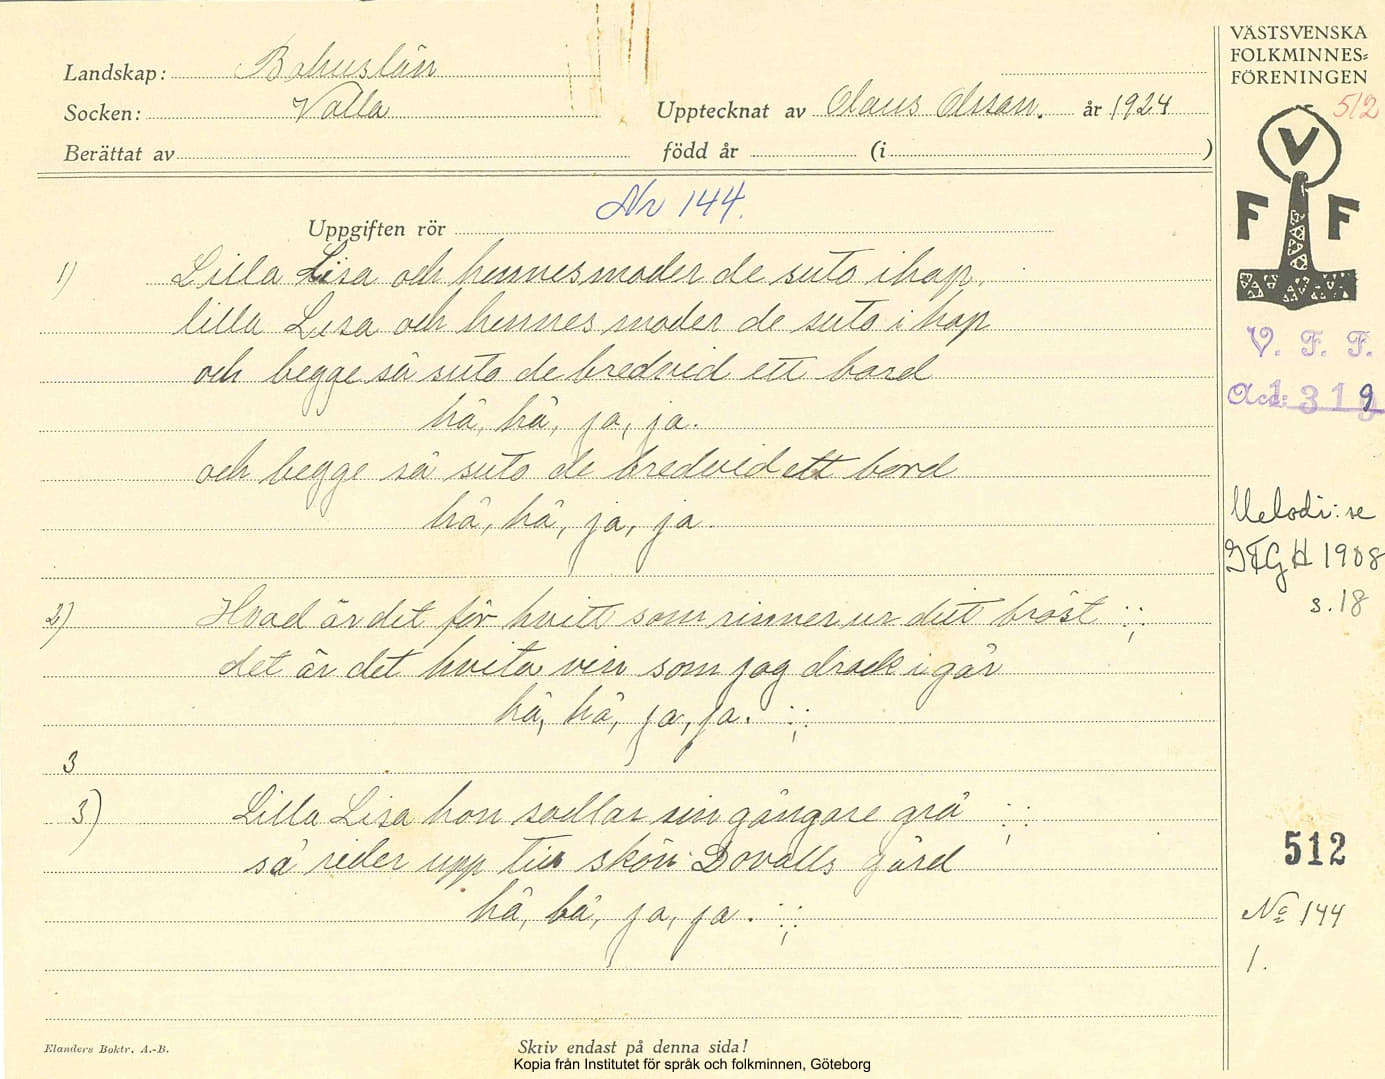 Landskap: Bohuslän
Socken: Valla
Upptecknat av Olaus Olsson. år 1924
Berättat av
född år (i )
VÄSTSVENSKA
FOLKMINNES=
FÖRENINGEN
512
V
F F
V. F. F.
Acc: 1319
Nr 144.
Uppgiften rör
1) Lilla Lisa och hennes moder de suto ihop.
lilla Lisa och hennes moder de suto i hop
och begge så suto de bredvid ett bord
hå, hå, ja, ja.
och begge så suto de bredvid ett bord
hå, hå, ja, ja.
2) Hvad är det för hvitt som rinner ur ditt bröst :;:
det är det hvita vin som jag drack i går
hå, hå, ja, ja. :;:
3
3) Lilla Lisa hon sadlar sin gångare grå :;:
så rider upp till skön Dovalls gård
hå, hå, ja, ja. :;:
Melodi: se
GFGH 1908
s. 18
512
No 144
1.
Elanders Boktr. A.-B.
Skriv endast på denna sida!
Kopia från Institutet för språk och folkminnen, Göteborg